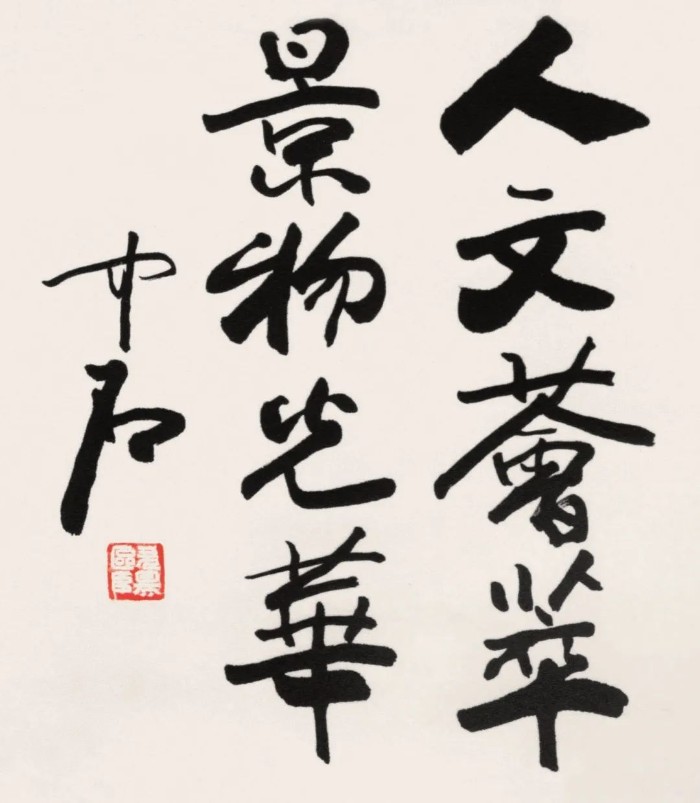 人文薈萃
景物光華
中石